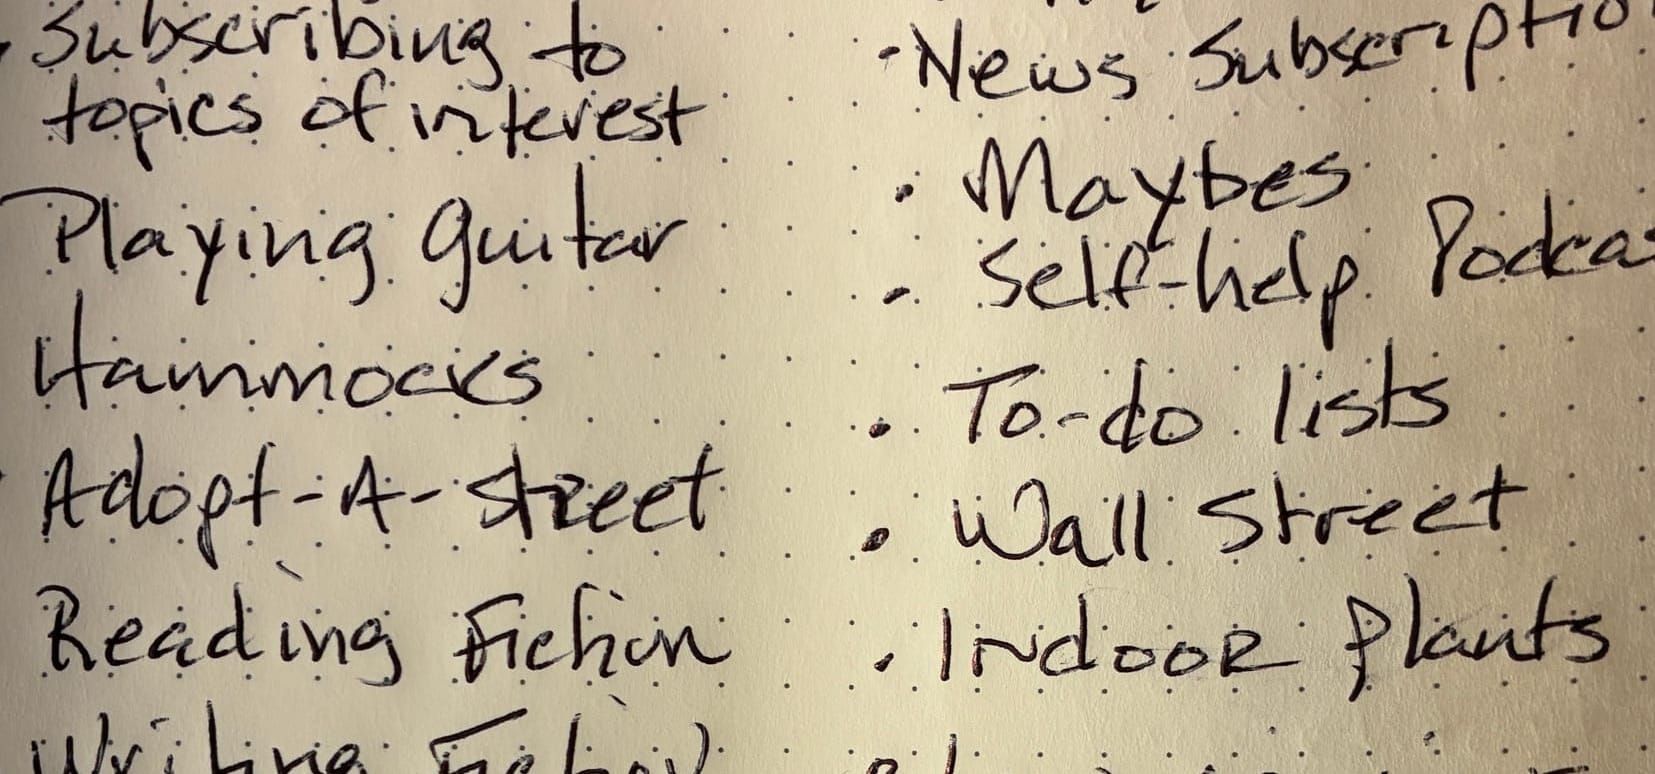 Subscribing to
topics of interest
Playing guitar
Hammocks
Adopt-A-street
Reading Fiction
Writing Fiction
• News Subscriptio
• Maybes
• Self-help Podcas
• To-do lists
• Wall Street
• Indoor plants